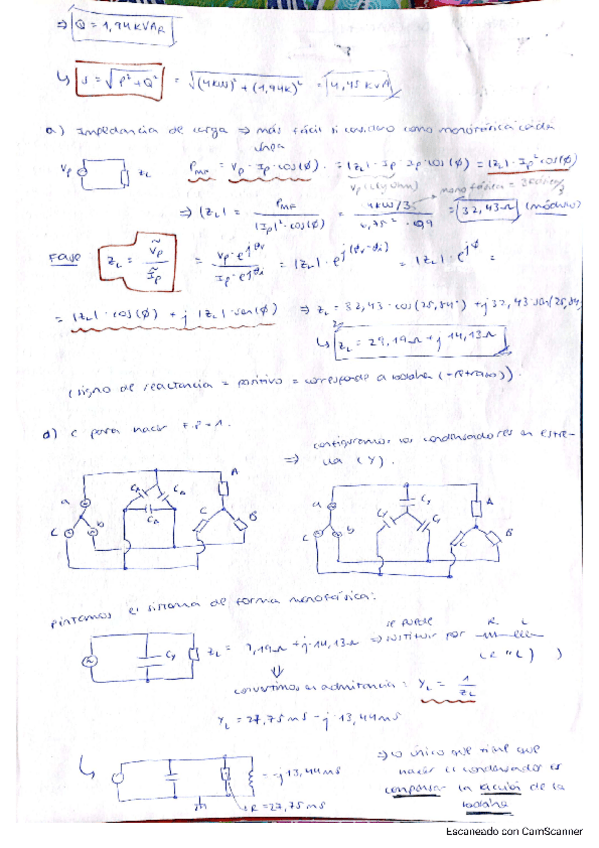 ⇒ Q = 1,94 KVAR
↳ S = √(P² + Q²) = √((4kW)² + (1,94k)²) = 4,45 kVA
a) Impedancia de carga ⇒ más fácil si como monofásica cada
línea
Vp ZL Pmf = Vp · Ip · cos(φ) = |ZL| · Ip · Ip cos(φ) = |ZL| · Ip² cos(φ)
Vp
⇒ |ZL| = Pmf / (|Ip|² · cos(φ)) = (4kW/3) / (² · 0,9) = 32,43 Ω (módulo)
Fase ZL = Ṽp / Ĩp = = |ZL| · e^j = |ZL| · e^jφ =
= |ZL| · cos(φ) + j |ZL| · sen(φ) ⇒ ZL = 32,43 · cos(25,84°) + j 32,43 sen(25,84
↳ ZL = 29,19 Ω + j 14,13 Ω
(signo de reactancia = positivo = corresponde a bobina (→ retraso)).
d) C para hacer F.P = 1.
configuramos los condensadores en estre-
⇒ lla (Y).
a b C CΔ CΔ CΔ A B C
a b C Cy Cy Cy A B C
pintamos el sistema de forma monofásica:
Cy ZL = 9,19 Ω + j 14,13 Ω ⇒ se puede sustituir por R L
convertimos en admitancia: YL = 1 / ZL
YL = 27,75 mS - j 13,44 mS
↳ -j 13,44 mS
R = 27,75 mS
⇒ lo único que tiene que
hacer el condensador es
compensar la de la
bobina
Escaneado con CamScanner